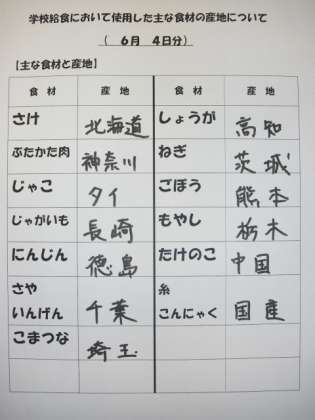 学校給食において使用した主な食材の産地について
（　6月　4日分）
【主な食材と産地】
食　材　産　地　食　材　産　地
さけ　北海道　しょうが　高知
ぶたかた肉　神奈川　ねぎ　茨城
じゃこ　タイ　ごぼう　熊本
じゃがいも　長崎　もやし　栃木
にんじん　徳島　たけのこ　中国
さや　糸
いんげん　千葉　こんにゃく　国産
こまつな　埼玉